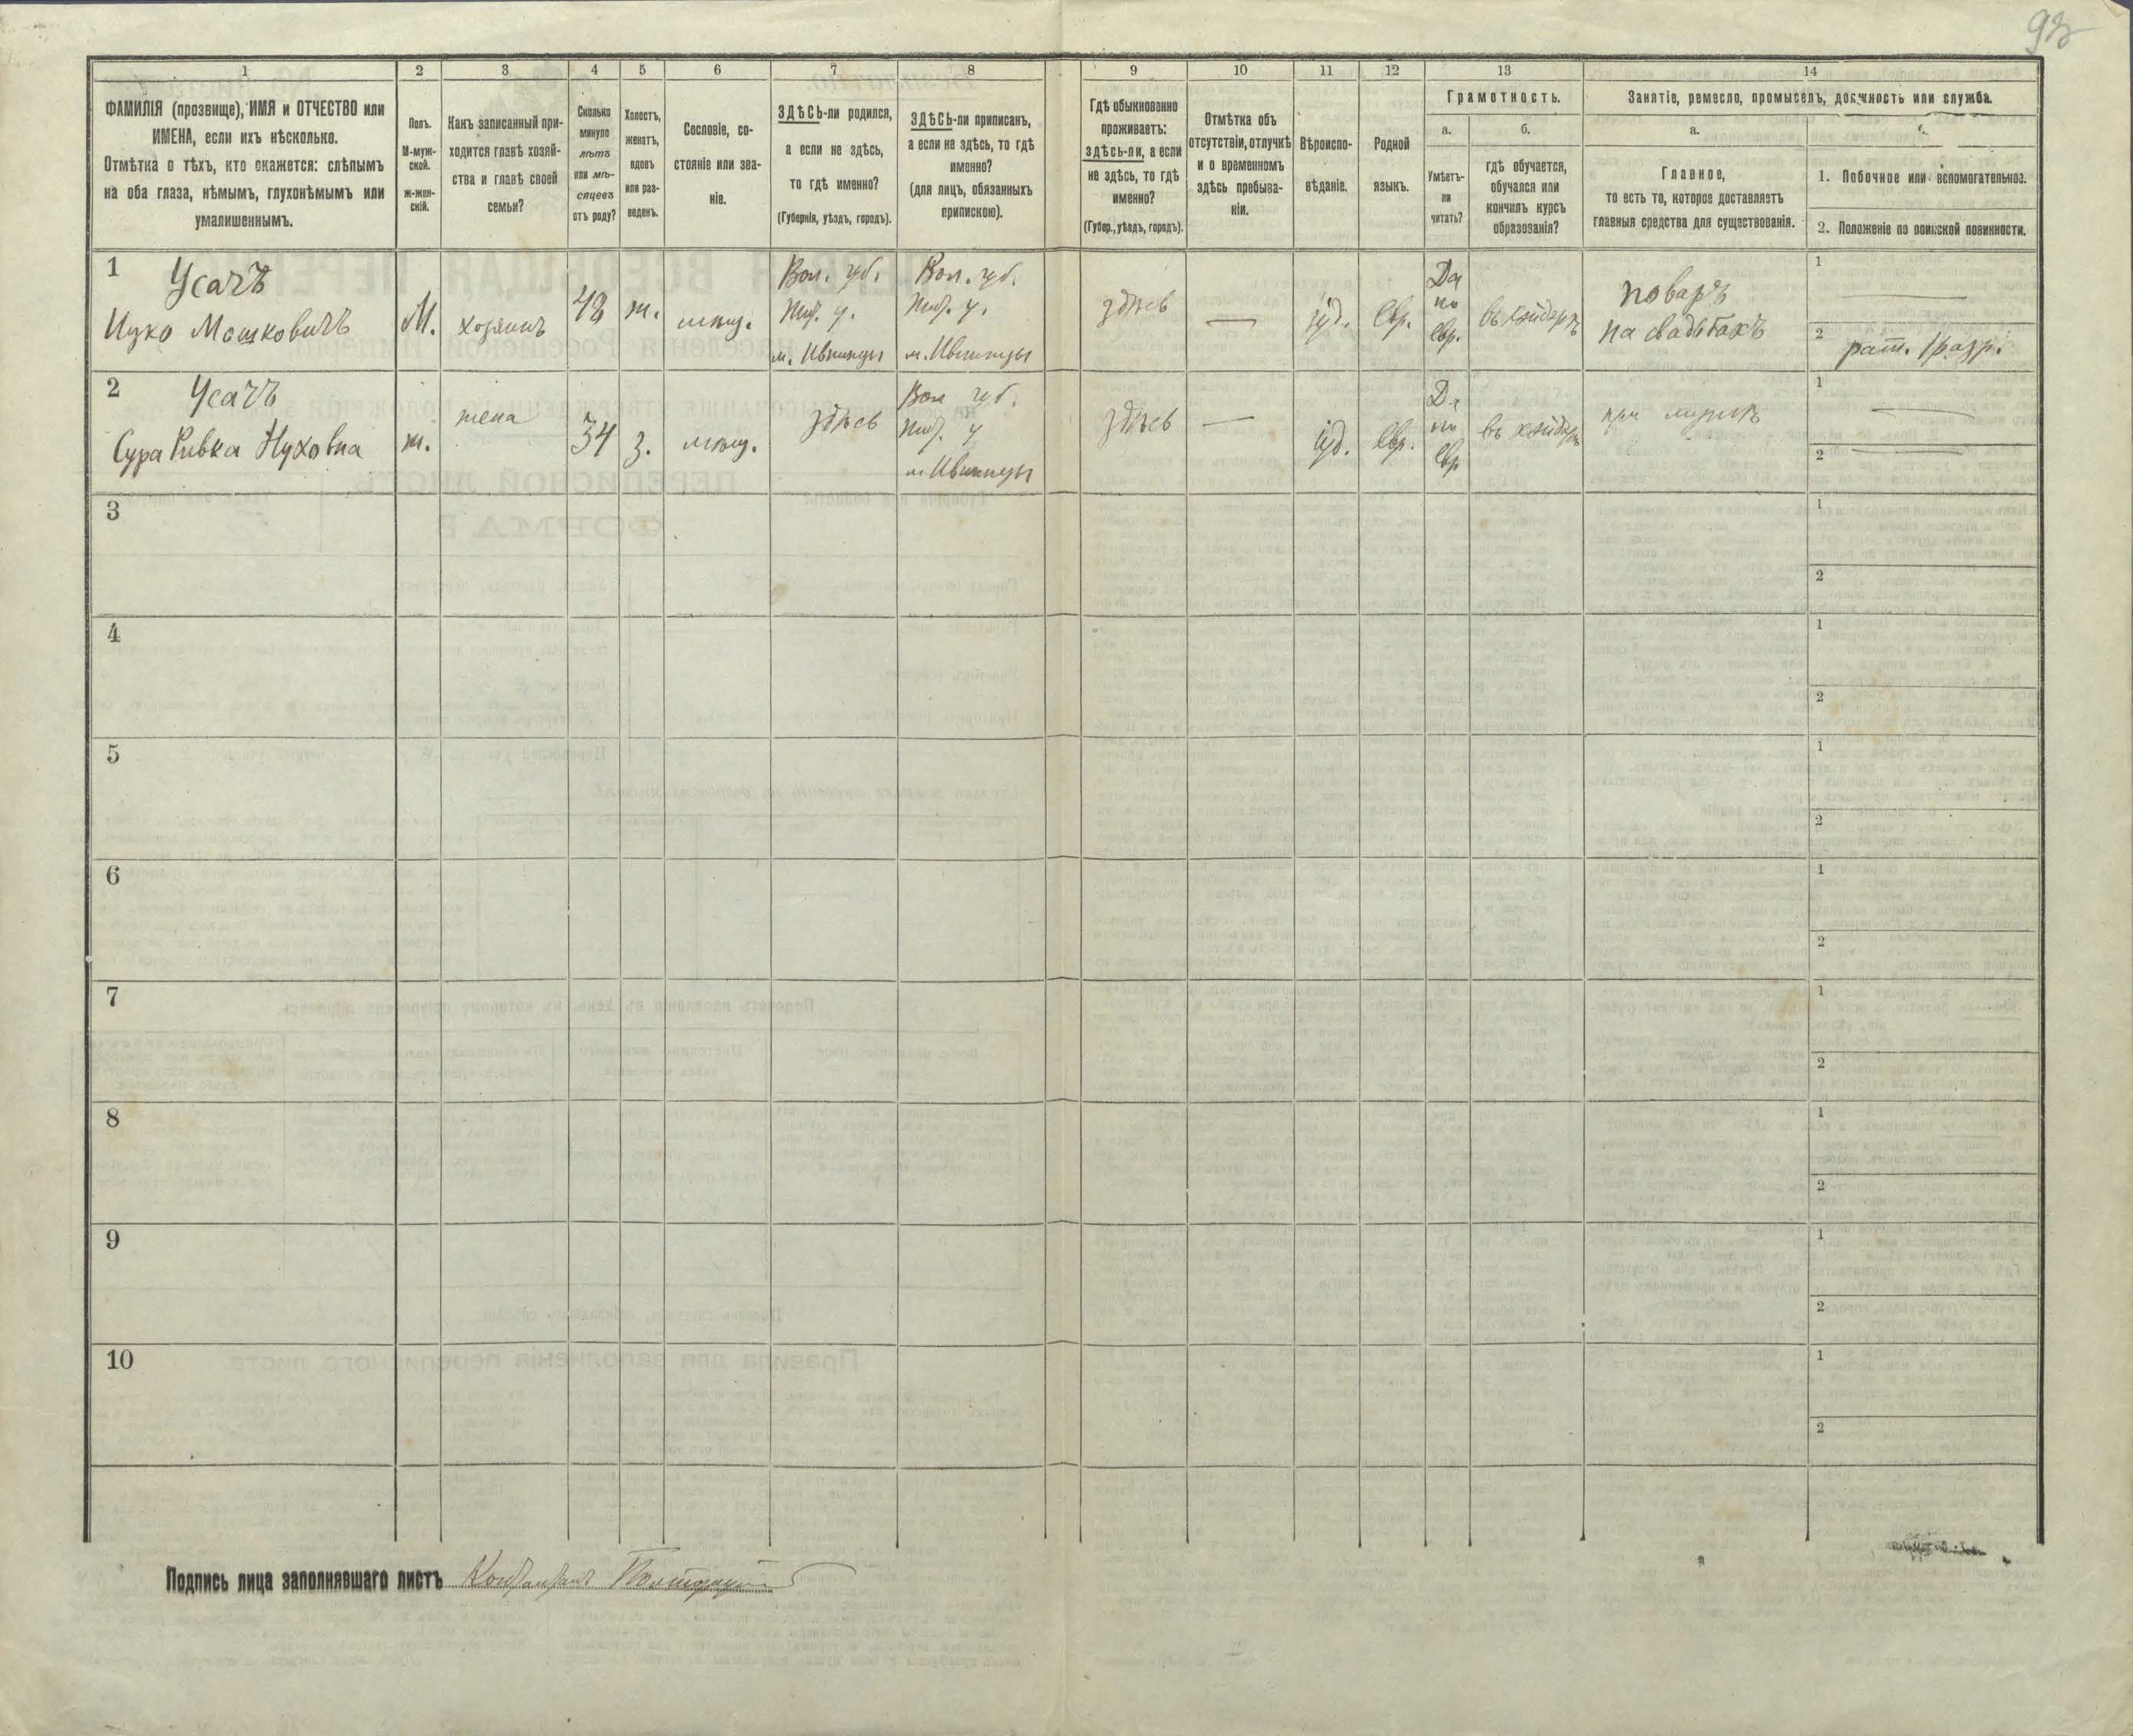 93
1
2
3
4
5
6
7
8
9
10
11
12
13
14
ФАМИЛІЯ (прозвище), ИМЯ и ОТЧЕСТВО или
ИМЕНА, если ихъ нѣсколько.
Отмѣтка о тѣхъ, кто окажется: слѣпымъ
на оба глаза, нѣмымъ, глухонѣмымъ или
умалишеннымъ.
Полъ.
М-муж-
ской.
ж-жен-
скій.
Какъ записанный при-
ходится главѣ хозяй-
ства и главѣ своей
семьи?
Сколько
минуло
лѣтъ
или мѣ-
сяцевъ
отъ роду?
Холостъ,
женатъ,
вдовъ
или раз-
веденъ.
Сословіе, со-
стояніе или зва-
ніе.
ЗДѢСЬ-ли родился,
а если не здѣсь,
то гдѣ именно?
(Губернія, уѣздъ, городъ).
ЗДѢСЬ-ли приписанъ,
а если не здѣсь, то гдѣ
именно?
(для лицъ, обязанныхъ
припискою).
Гдѣ обыкновенно
проживаетъ:
здѣсь-ли, а если
не здѣсь, то гдѣ
именно?
(Губер., уѣздъ, городъ).
Отмѣтка объ
отсутствіи, отлучкѣ
и о временномъ
здѣсь пребыва-
ніи.
Вѣроиспо-
вѣданіе.
Родной
языкъ.
Грамотность.
а.
Умѣетъ-
ли
читать?
б.
гдѣ обучается,
обучался или
кончилъ курсъ
образованія?
Занятіе, ремесло, промыселъ, должность или служба.
а.
Главное,
то есть то, которое доставляетъ
главныя средства для существованія.
1. Побочное или вспомогательное.
2. Положеніе по воинской повинности.
1
Усачъ
Ицко Мошковичъ
М.
хозяинъ
48
ж.
мѣщ.
Вол. губ.
Жит. у.
м. Ивницы
Вол. губ.
Жит. у.
м. Ивницы
здѣсь
—
іуд.
Евр.
Да
по
евр.
въ хэйдерѣ
поваръ
на свадьбахъ
1
—
2
рат. 1 разр.
2
Усачъ
Сура Ривка Нуховна
ж.
жена
34
з.
мѣщ.
здѣсь
Вол губ.
Жит. у
м. Ивницы
здѣсь
—
іуд.
Евр.
Да
по
Евр
въ хэйдерѣ
при мужѣ
1
—
2
—
3
1
2
4
1
2
5
1
2
6
1
2
7
1
2
8
1
2
9
1
2
10
1
2
Подпись лица заполнявшаго листъ